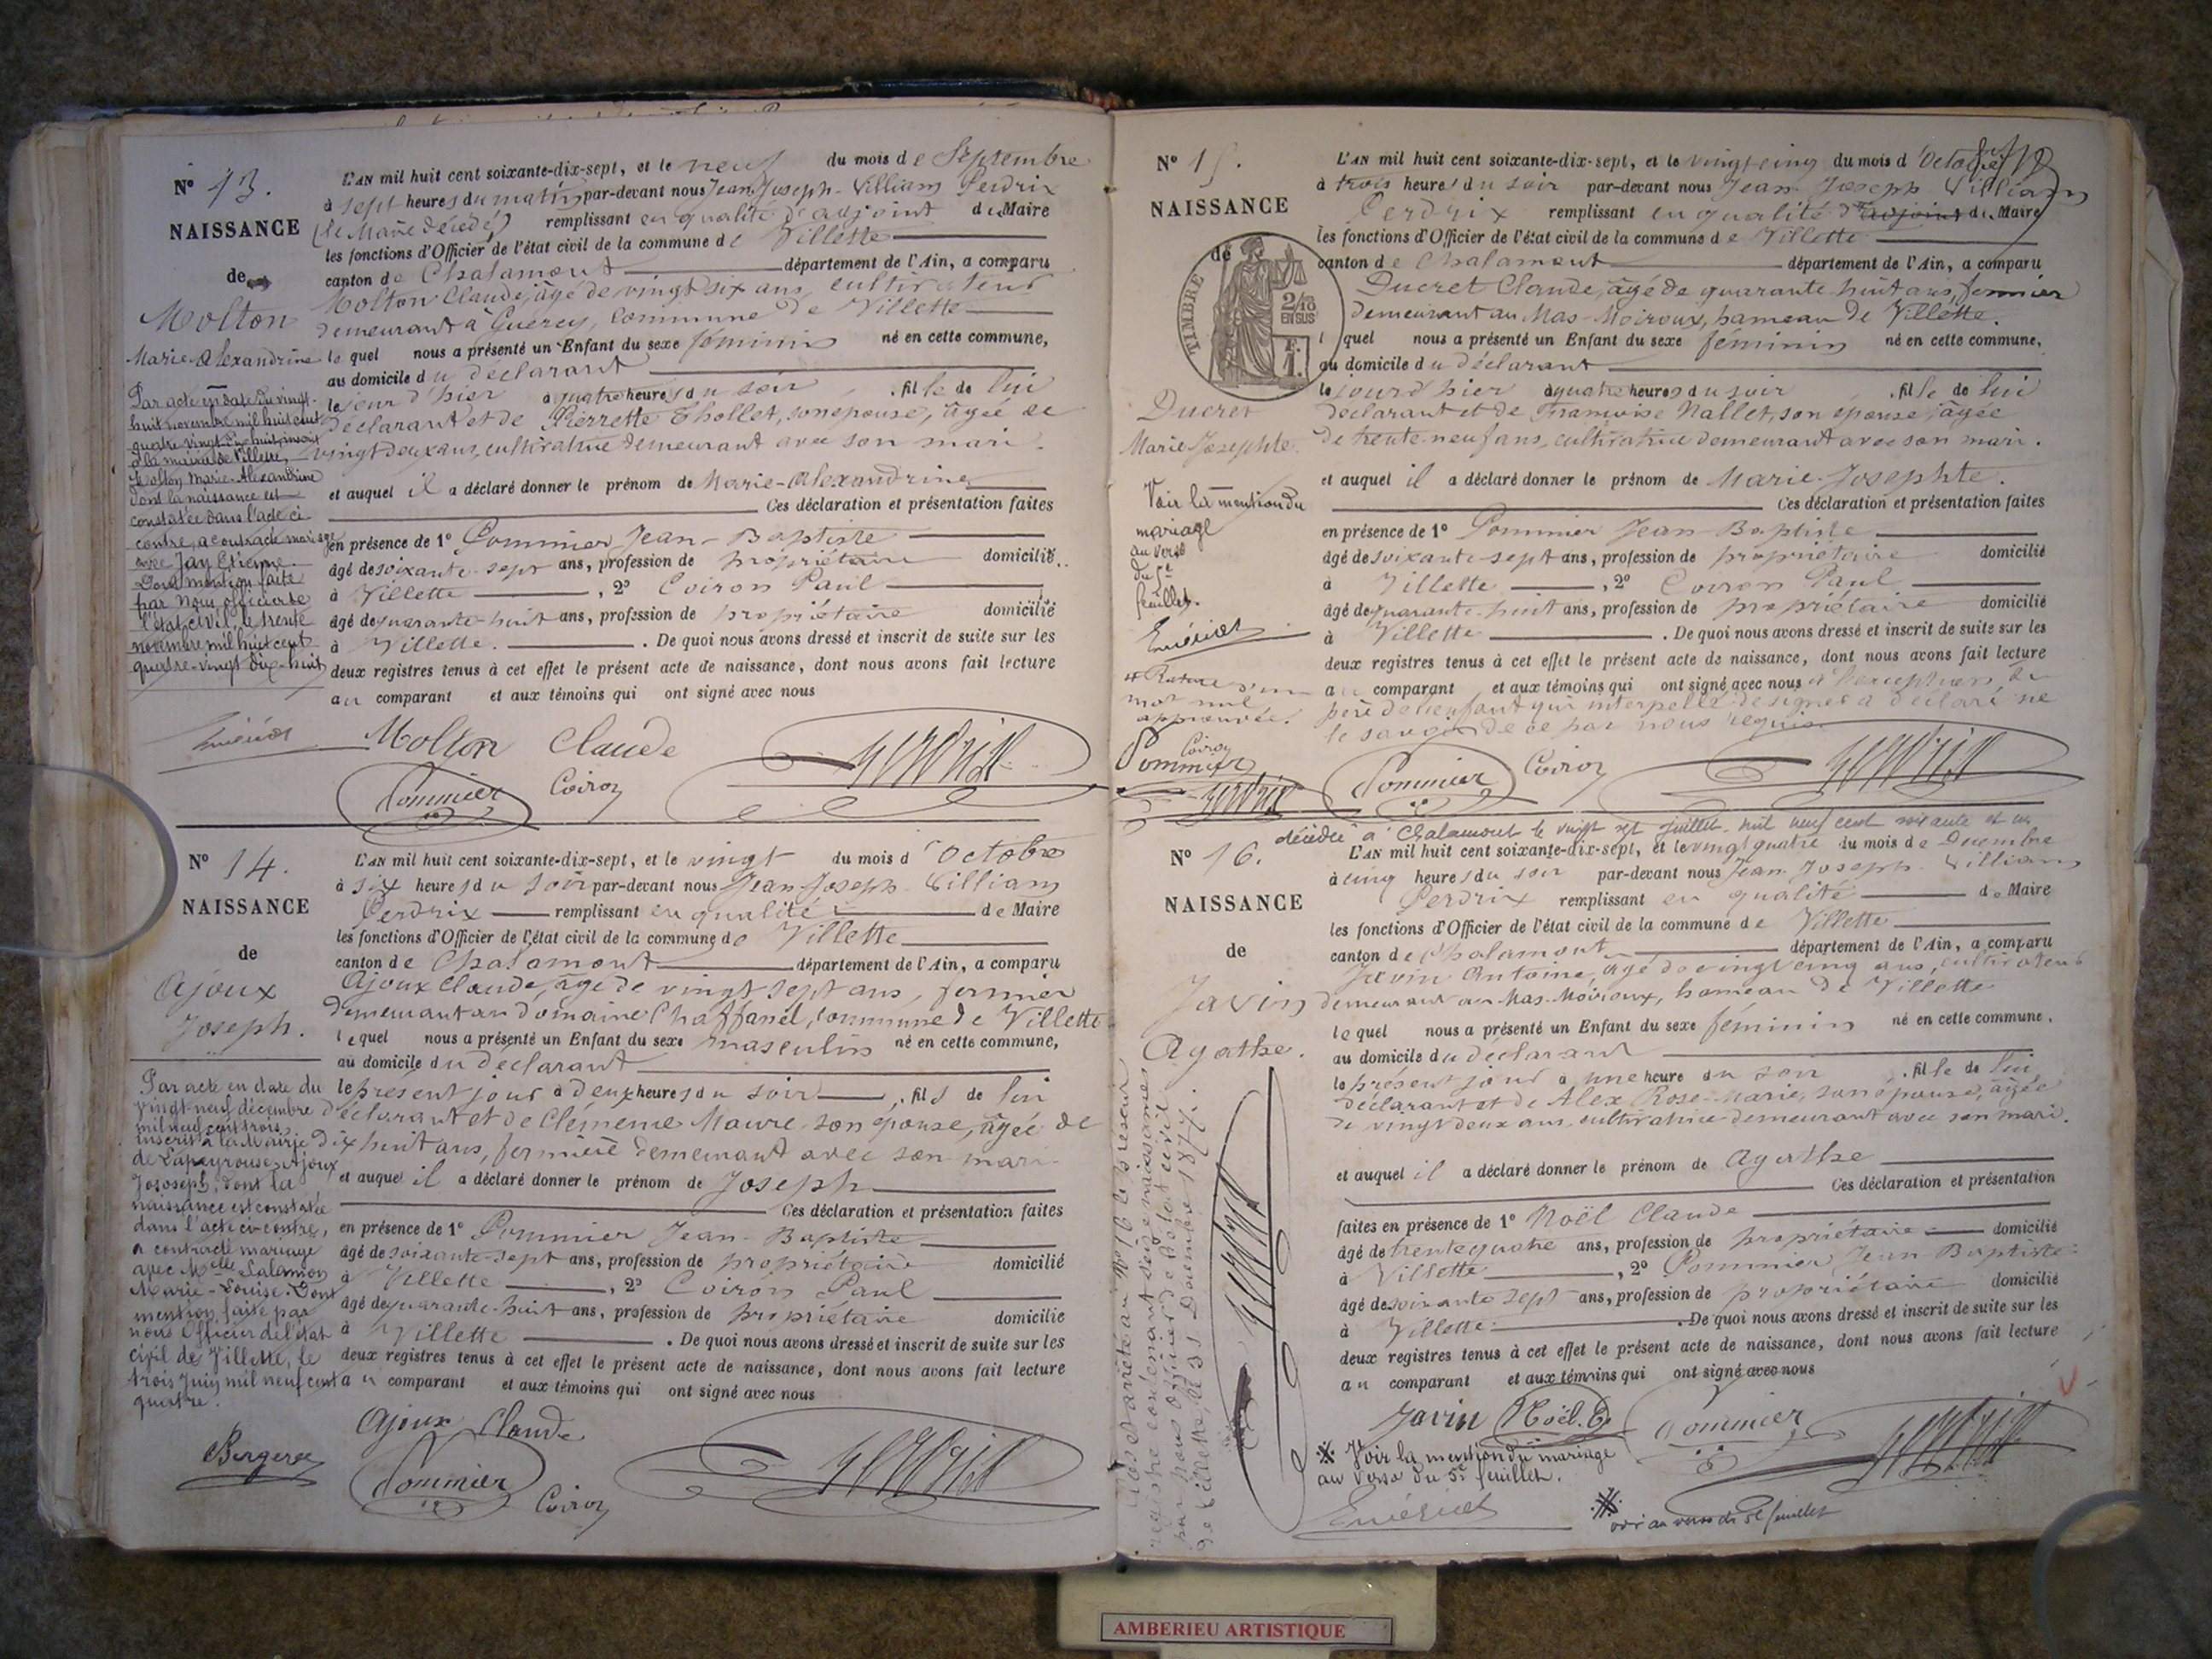 N° 13.
NAISSANCE
de
Molton
Marie-Alexandrine
L'AN mil huit cent soixante-dix-sept, et le neuf du mois de Septembre
à sept heures du matin par-devant nous Jean-Joseph-Villiam Perdrix
(le Maire décédé) remplissant en qualité d'adjoint de Maire
les fonctions d'Officier de l'état civil de la commune de Villette
canton de Chalamont département de l'Ain, a comparu
Molton Claude, âgé de vingt six ans, cultivateur
demeurant à Guérey, commune de Villette
le quel nous a présenté un Enfant du sexe féminin né en cette commune,
au domicile du déclarant
le jour d'hier à quatre heures du soir, fille de lui
déclarant et de Pierrette Thollet, son épouse, âgée de
vingt deux ans, cultivatrice demeurant avec son mari
et auquel il a déclaré donner le prénom de Marie-Alexandrine
Ces déclaration et présentation faites
en présence de 1° Pommier Jean-Baptiste
âgé de soixante-sept ans, profession de propriétaire domicilié
à Villette, 2° Coiron Paul
âgé de quarante-huit ans, profession de propriétaire domicilié
à Villette. De quoi nous avons dressé et inscrit de suite sur les
deux registres tenus à cet effet le présent acte de naissance, dont nous avons fait lecture
au comparant et aux témoins qui ont signé avec nous
Par acte en date du vingt-
huit novembre mil huit cent
quatre vingt dix huit, inscrit
à la mairie de Villette,
Molton Marie-Alexandrine
dont la naissance est
constatée dans l'acte ci-
contre, a contracté mariage
avec Jay Etienne.
Dont mention faite
par Nous, officier de
l'état civil, le trente
novembre mil huit cent
quatre-vingt dix-huit
Molton Claude
Pommier Coiron Perdrix
N° 14.
NAISSANCE
de
Ajoux
Joseph.
L'AN mil huit cent soixante-dix-sept, et le vingt du mois d'Octobre
à six heures du soir par-devant nous Jean-Joseph Villiam
Perdrix remplissant en qualité de Maire
les fonctions d'Officier de l'état civil de la commune de Villette
canton de Chalamont département de l'Ain, a comparu
Ajoux Claude, âgé de vingt sept ans, fermier
demeurant au domaine Chaffanel, commune de Villette
lequel nous a présenté un Enfant du sexe masculin né en cette commune,
au domicile du déclarant
le présent jour à deux heures du soir, fils de lui
déclarant et de Clémence Maure, son épouse, âgée de
dix huit ans, fermière demeurant avec son mari
et auquel il a déclaré donner le prénom de Joseph
Ces déclaration et présentation faites
en présence de 1° Pommier Jean-Baptiste
âgé de soixante-sept ans, profession de propriétaire domicilié
à Villette, 2° Coiron Paul
âgé de quarante-huit ans, profession de propriétaire domicilié
à Villette. De quoi nous avons dressé et inscrit de suite sur les
deux registres tenus à cet effet le présent acte de naissance, dont nous avons fait lecture
au comparant et aux témoins qui ont signé avec nous
Par acte en date du
vingt-neuf décembre
mil neuf cent trois
inscrit à la Mairie
de Lapeyrouse, Ajoux
Joseph, dont la
naissance est constatée
dans l'acte ci-contre,
a contracté mariage
avec Melle Salamon
Marie-Louise. Dont
mention faite par
nous Officier de l'état
civil de Villette, le
trois Juin mil neuf cent
quatre.
Ajoux Claude
Pommier Coiron Perdrix
N° 15.
NAISSANCE
de
TIMBRE
2/10
EN SUS
Ducret
Marie Josephte
L'AN mil huit cent soixante-dix-sept, et le vingt-cinq du mois d'Octobre
à trois heures du soir par-devant nous Jean-Joseph Villiam
Perdrix remplissant en qualité d'adjoint de Maire
les fonctions d'Officier de l'état civil de la commune de Villette
canton de Chalamont département de l'Ain, a comparu
Ducret Claude, âgé de quarante-huit ans, fermier
demeurant au Mas-Moiroux, hameau de Villette.
lequel nous a présenté un Enfant du sexe féminin né en cette commune,
au domicile du déclarant
le jour d'hier à quatre heures du soir, fille de lui
déclarant et de Françoise Nallet, son épouse, âgée
de trente-neuf ans, cultivatrice demeurant avec son mari.
et auquel il a déclaré donner le prénom de Marie-Josephte.
Ces déclaration et présentation faites
en présence de 1° Pommier Jean-Baptiste
âgé de soixante-sept ans, profession de propriétaire domicilié
à Villette, 2° Coiron Paul
âgé de quarante-huit ans, profession de propriétaire domicilié
à Villette. De quoi nous avons dressé et inscrit de suite sur les
deux registres tenus à cet effet le présent acte de naissance, dont nous avons fait lecture
au comparant et aux témoins qui ont signé avec nous à l'exception du
père de l'enfant qui interpellé de signer a déclaré ne
le savoir de ce par nous requis
Voir la mention du
mariage
au verso
du 5e
feuillet.
Rature d'un
mot nul
approuvée.
Coiron
Pommier
Perdrix
Pommier Coiron Perdrix
décédée à Chalamont le vingt sept juillet mil neuf cent soixante et un
N° 16.
NAISSANCE
de
Javin
Agathe.
L'AN mil huit cent soixante-dix-sept, et le vingt quatre du mois de Décembre
à cinq heures du soir par-devant nous Jean-Joseph Villiam
Perdrix remplissant en qualité de Maire
les fonctions d'Officier de l'état civil de la commune de Villette
canton de Chalamont département de l'Ain, a comparu
Javin Antoine, âgé de vingt cinq ans, cultivateur
demeurant au Mas-Moiroux, hameau de Villette
lequel nous a présenté un Enfant du sexe féminin né en cette commune,
au domicile du déclarant
le présent jour à une heure du soir, fille de lui
déclarant et de Alex Rose-Marie, son épouse, âgée
de vingt deux ans, cultivatrice demeurant avec son mari.
et auquel il a déclaré donner le prénom de Agathe
Ces déclaration et présentation
faites en présence de 1° Noël Claude
âgé de trente quatre ans, profession de propriétaire domicilié
à Villette, 2° Pommier Jean Baptiste
âgé de soixante sept ans, profession de propriétaire domicilié
à Villette. De quoi nous avons dressé et inscrit de suite sur les
deux registres tenus à cet effet le présent acte de naissance, dont nous avons fait lecture
au comparant et aux témoins qui ont signé avec nous
Javin Noël. C. Pommier Perdrix
Voir la mention du mariage
au verso du 5e feuillet.
voir au verso du 5e feuillet
arrêté au N° 16 le présent
registre contenant seize naissances
par nous officier de l'état civil
de Villette, le 31 Décembre 1877.
Perdrix
AMBERIEU ARTISTIQUE